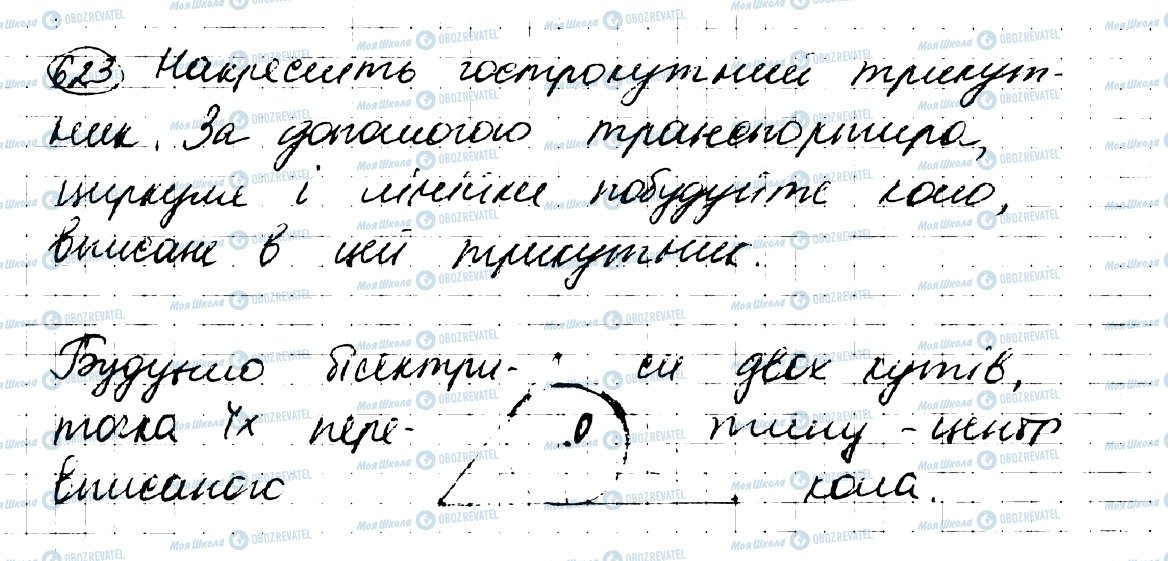 623. Накресліть гострокутний трикут-
ник. За допомогою транспортира,
циркуля і лінійки побудуйте коло,
вписане в цей трикутник.
Будуємо бісектри- си двох кутів,
точка їх пере- тину - центр
вписаного О кола.